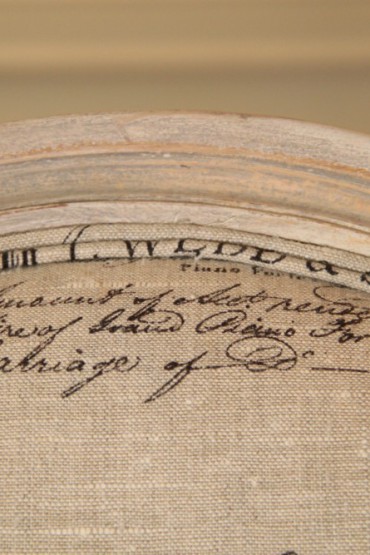 WEBB & S
Piano Forte
mount of Acct render
ire of Grand Piano For
arriage of Do